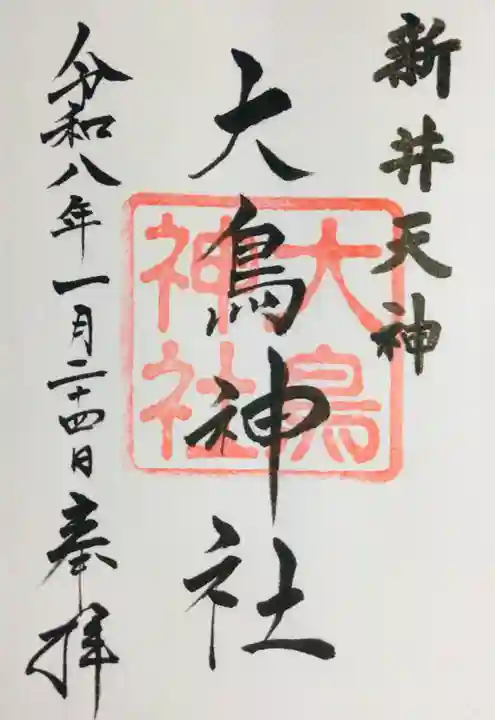 新井天神
大鳥神社
大鳥神社
令和八年一月二十四日奉拝